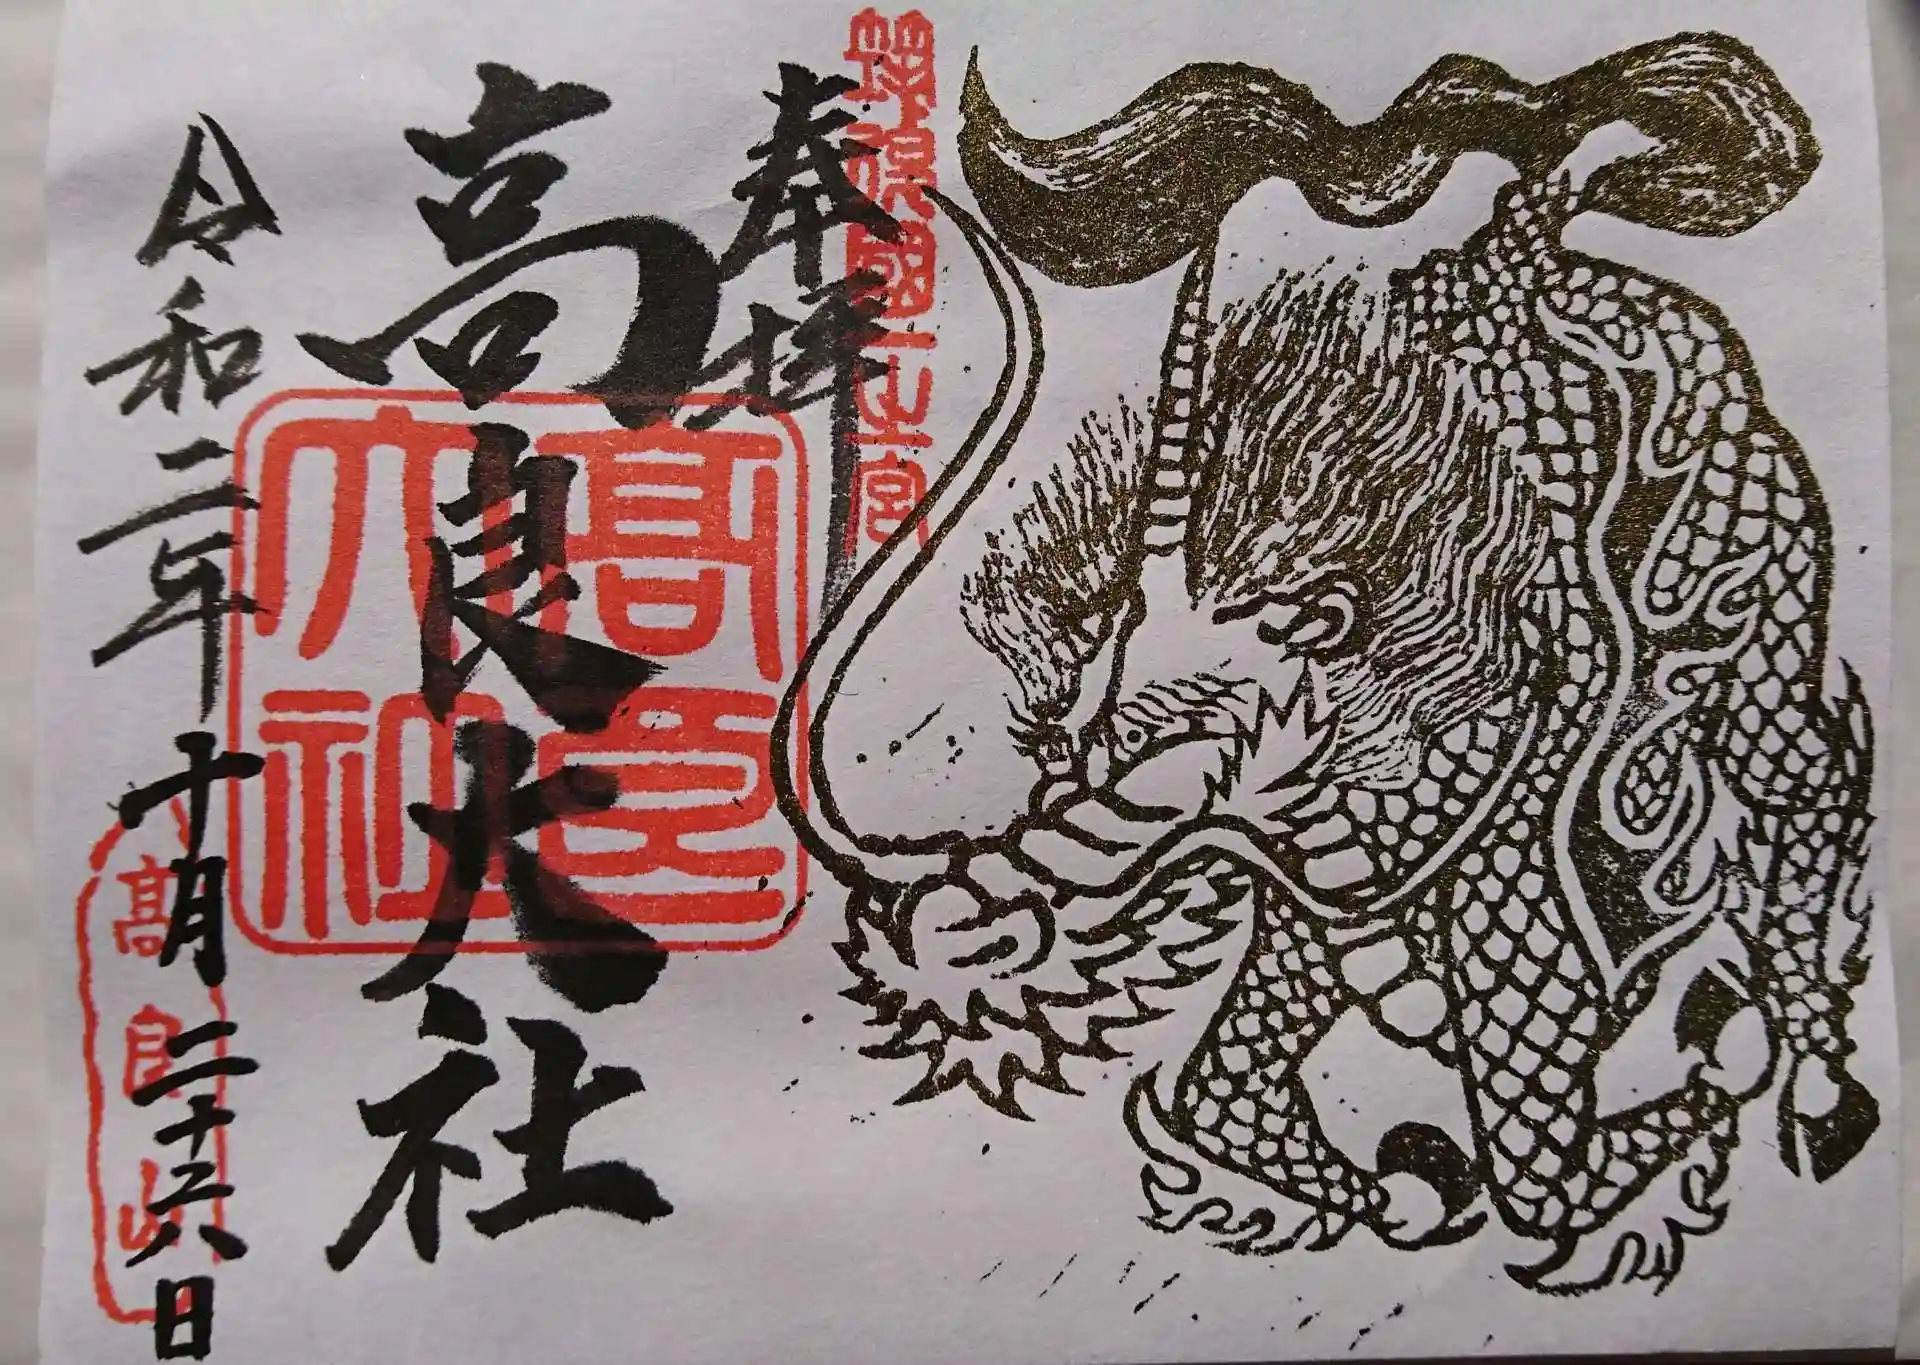 奉拝
筑後國一之宮
高良大社
高良大社
令和二年十月二十六日
高良山